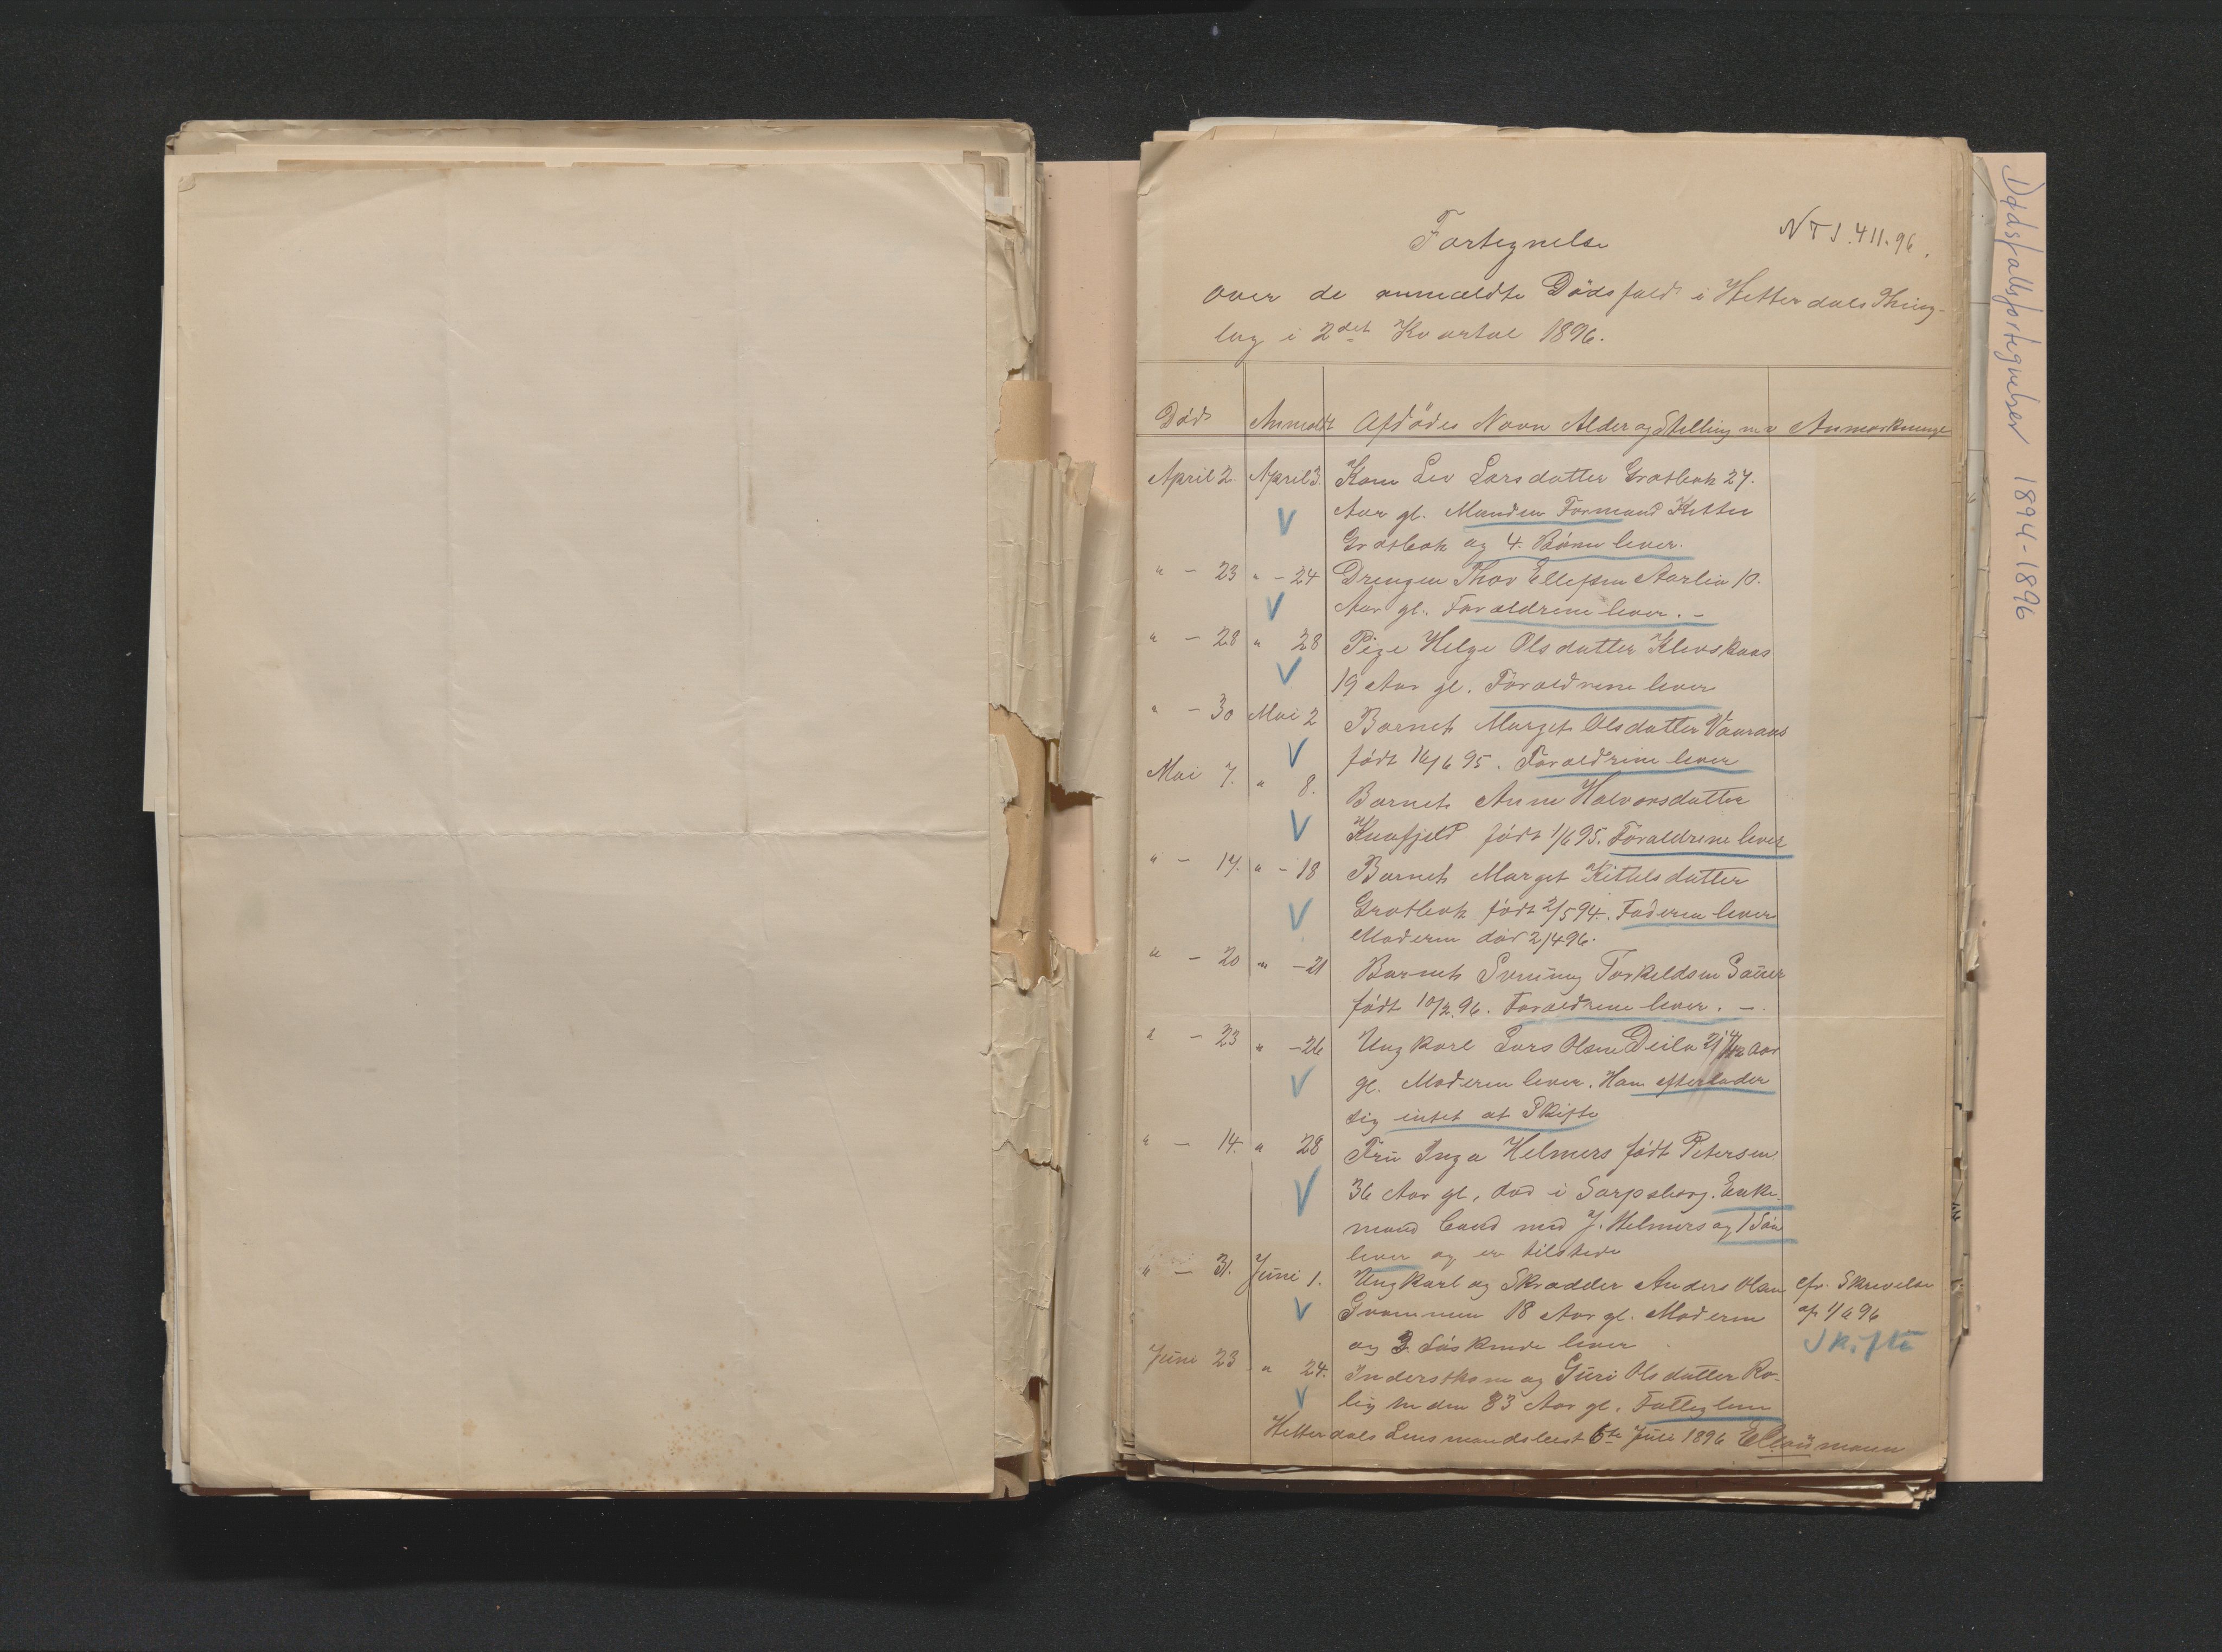 Fortegnelse
NTJ. 411. 96.
over de anmældte Dödsfald i Hitterdals Thing-
lag i 2det Kvartal 1896.
Död Anmeldt Afdödes Navn Alder og Stilling m.v Anmærkninger
April 2. April 3. Kone Liv Larsdatter Grotbæk 27.
Aar gl. Manden Formand Kittil
Grotbæk og 4. Börn lever.
" - 23 " - 24 Drengen Thov Ellefsen Aarlia 10.
Aar gl. Forældrene lever. -
" - 28 " 28 Pige Helge Olsdatter Klevskaas
19 Aar gl. Forældrene lever
" - 30 Mai 2 Barnet Marget Olsdatter Vaaraas
födt 16/6 95. Forældrene lever
Mai 7. " 8. Barnet Anne Halvorsdatter
Knafjeld födt 1/6 95. Forældrene lever
" - 17. " - 18 Barnet Marget Kittelsdatter
Grotbæk födt 2/5 94. Faderen lever
Moderen död 2/4 96.
" - 20 " - 21 Barnet Svenung Torkeldsen Sauer
födt 10/2. 96. Forældrene lever. -
" - 23 " - 26 Ungkarl Lars Olsen Deila 21 Aar
gl. Moderen lever. Han efterlader
sig intet at Skifte
" - 14. " 28 Fru Inga Helmers födt Petersen
36 Aar gl, död i Sarpsborg. Enke-
mand Cand med J. Helmers og 1 Sön
lever og er tilstede
" - 31. Juni 1. Ungkarl og Skrædder Anders Olsen cfr. Skrivelse
Grammen 18 Aar gl. Moderen af 1/6 96
og 3 Söskende lever
Skifte
Juni 23 " 24. Inderstkone og Guri Olsdatter Ro-
lig 83 Aar gl. Fattiglem
Hitterdals Lensmandsbest 6te Juli 1896
Dødsfallsfortegnelser 1894-1896